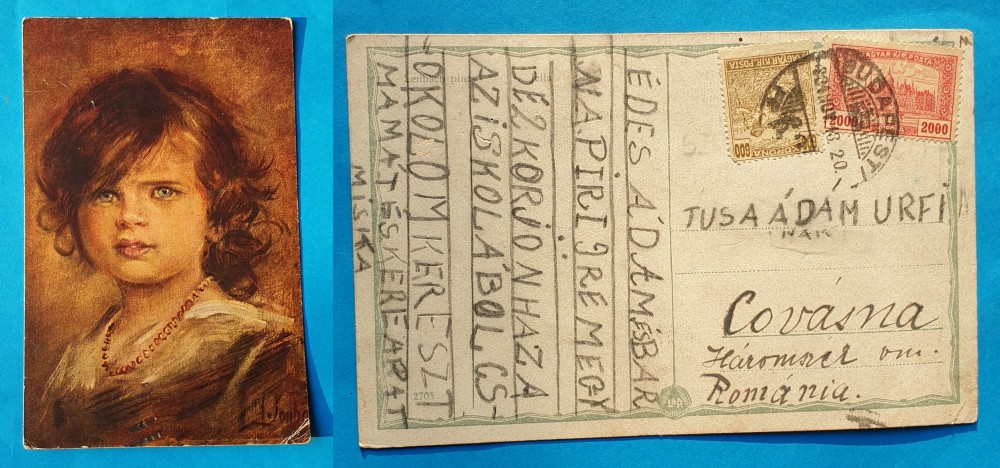 L. Lenba
Lenbach pinx.
ÉDES ÁDÁM ÉS BAR
NA PIRI IRE MEGY
DÉZKOR JÖN HAZA
AZ ISKOLÁBOL CS-
ÓKOLOM KERESZT
MAMAT ÉS KERE APAT
MISIKA
2705
MAGYAR KIR. POSTA
KORONA
600
MAGYAR KIR. POSTA
2000 2000
BUDAPEST
TUSA ÁDÁM URFI
NAK
Covásna
Háromszék vm.
Románia.